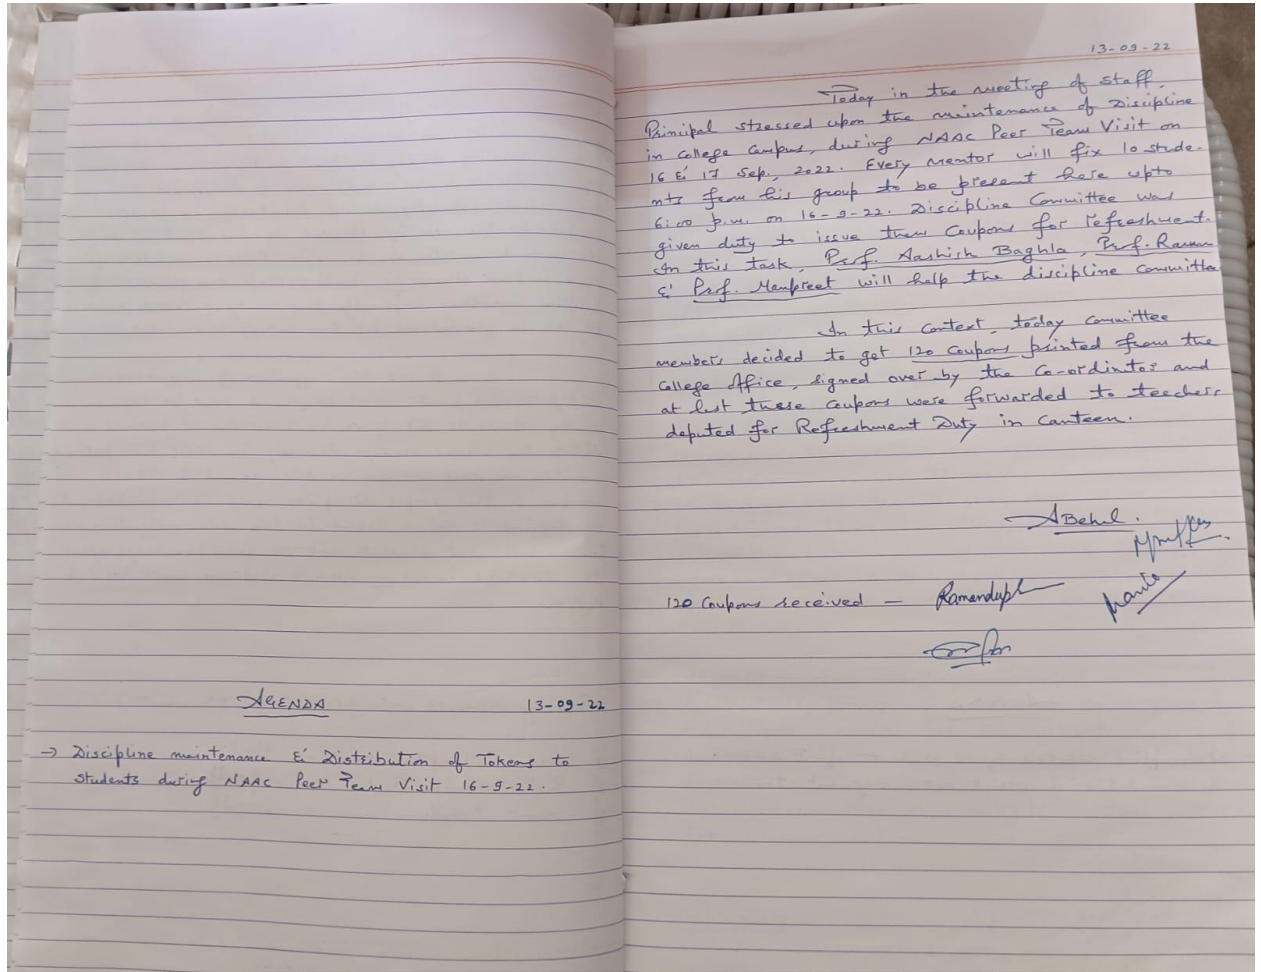 AGENDA 13-09-22
→ Discipline maintenance & Distribution of Tokens to
students during NAAC Peer Team Visit 16-9-22.
13-09-22
Today in the meeting of staff,
Principal stressed upon the maintenance of Discipline
in College Campus, during NAAC Peer Team Visit on
16 & 17 Sep., 2022. Every mentor will fix 10 stude-
nts from his group to be present here upto
6:00 p.m. on 16-9-22. Discipline Committee was
given duty to issue them Coupons for refreshment.
In this task, Prof. Aashish Baghla, Prof. Raman
& Prof. Manpreet will help the discipline committee
In this context, today committee
members decided to get 120 Coupons printed from the
College Office, signed over by the Co-ordinator and
at last these Coupons were forwarded to teachers
deputed for Refreshment Duty in Canteen.
ABehl.
120 Coupons received —